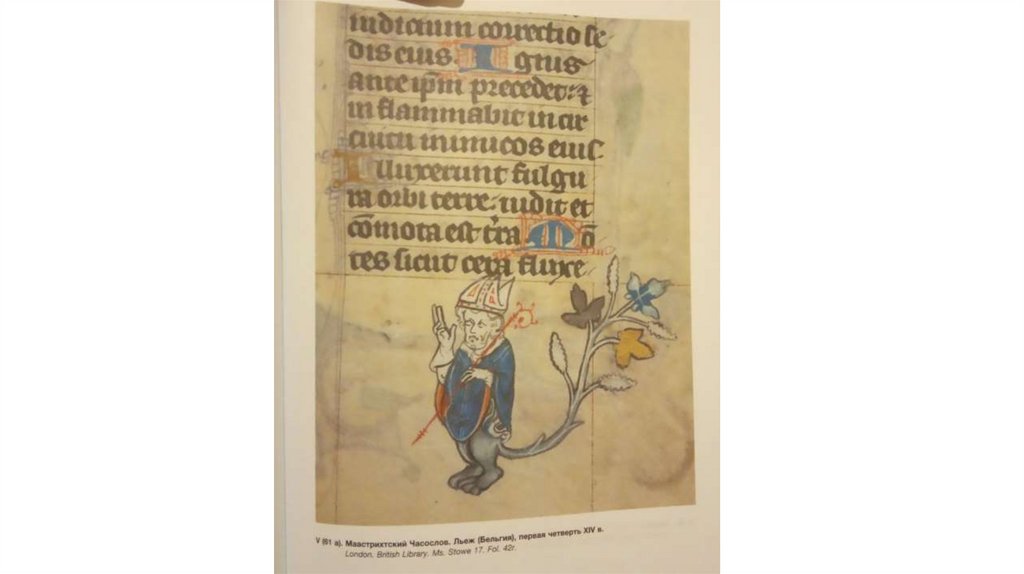 iudicium correctio se
dis eius. Ignis
ante ip̄m precedet: ⁊
inflammabit in cir
cuitu inimicos eius
Illuxerunt fulgu
ra orbi terre: uidit et
cōmota est t'ra Mō
tes sicut cera fluxe
V (61 а). Маастрихтский Часослов. Льеж (Бельгия), первая четверть XIV в.
London, British Library, Ms. Stowe 17. Fol. 42r.